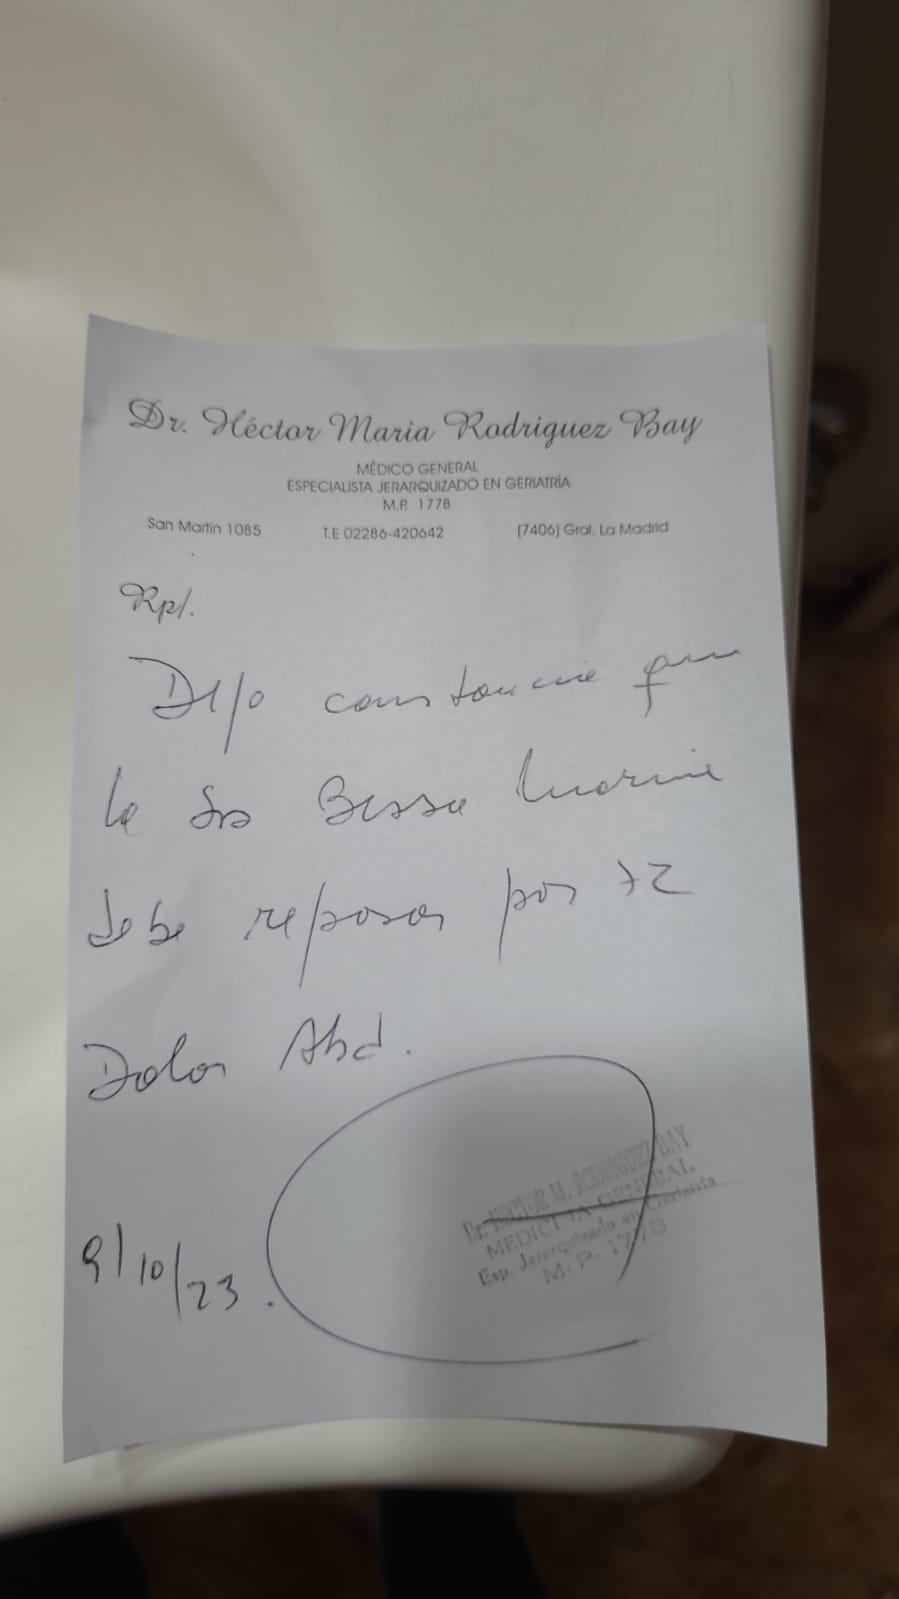 Dr. Héctor Maria Rodriguez Bay
MÉDICO GENERAL
ESPECIALISTA JERARQUIZADO EN GERIATRÍA
M.P. 1778
San Martín 1085 T.E 02286-420642 (7406) Gral. La Madrid
Rp/.
Dejo constancia que
la Sra Bessa
debe reposar por 72
Dolor Abd.
9/10/23.
Dr. HECTOR M. RODRIGUEZ BAY
MEDICINA GENERAL
Esp. Jerarquizado en Geriatría
M. P. 1778